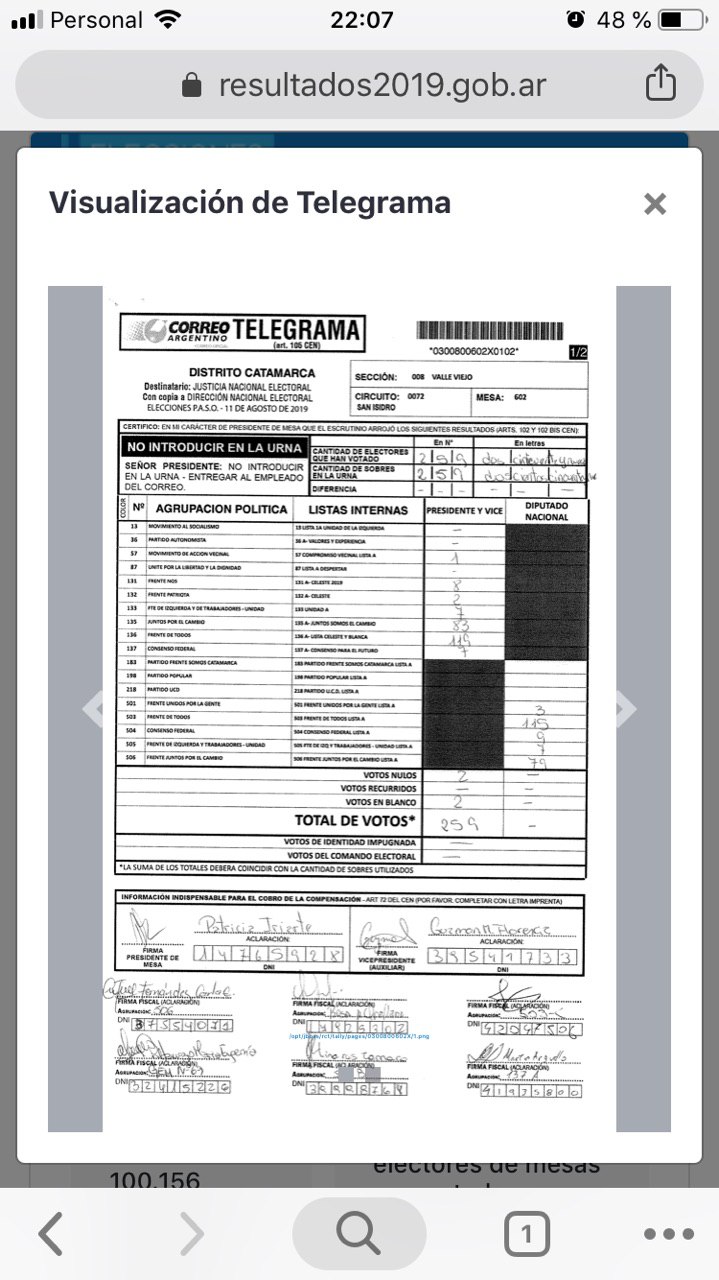 Personal 22:07 48 %
resultados2019.gob.ar
Visualización de Telegrama ×
CORREO ARGENTINO TELEGRAMA
(art. 105 CEN)
*0300800602X0102* 1/2
DISTRITO CATAMARCA
Destinatario: JUSTICIA NACIONAL ELECTORAL
Con copia a DIRECCIÓN NACIONAL ELECTORAL
ELECCIONES P.A.S.O. - 11 DE AGOSTO DE 2019
SECCIÓN: 008 VALLE VIEJO
CIRCUITO: 0072 MESA: 602
SAN ISIDRO
CERTIFICO: EN MI CARÁCTER DE PRESIDENTE DE MESA QUE EL ESCRUTINIO ARROJÓ LOS SIGUIENTES RESULTADOS (ARTS. 102 Y 102 BIS CEN):
NO INTRODUCIR EN LA URNA
SEÑOR PRESIDENTE: NO INTRODUCIR
EN LA URNA - ENTREGAR AL EMPLEADO
DEL CORREO.
En Nº En letras
CANTIDAD DE ELECTORES QUE HAN VOTADO 2 5 9
CANTIDAD DE SOBRES EN LA URNA 2 5 9
DIFERENCIA - - - - - -
COLOR Nº AGRUPACION POLITICA LISTAS INTERNAS PRESIDENTE Y VICE DIPUTADO NACIONAL
13 MOVIMIENTO AL SOCIALISMO 13 LISTA 1A UNIDAD DE LA IZQUIERDA -
36 PARTIDO AUTONOMISTA 36 A- VALORES Y EXPERIENCIA -
57 MOVIMIENTO DE ACCION VECINAL 57 COMPROMISO VECINAL LISTA A 1
87 UNITE POR LA LIBERTAD Y LA DIGNIDAD 87 LISTA A DESPERTAR -
131 FRENTE NOS 131 A- CELESTE 2019 8
132 FRENTE PATRIOTA 132 A- CELESTE 2
133 FTE DE IZQUIERDA Y DE TRABAJADORES - UNIDAD 133 UNIDAD A 7
135 JUNTOS POR EL CAMBIO 135 A- JUNTOS SOMOS EL CAMBIO 83
136 FRENTE DE TODOS 136 A- LISTA CELESTE Y BLANCA
137 CONSENSO FEDERAL 137 A- CONSENSO PARA EL FUTURO 7
183 PARTIDO FRENTE SOMOS CATAMARCA 183 PARTIDO FRENTE SOMOS CATAMARCA LISTA A
198 PARTIDO POPULAR 198 PARTIDO POPULAR LISTA A
218 PARTIDO UCD 218 PARTIDO U.C.D. LISTA A
501 FRENTE UNIDOS POR LA GENTE 501 FRENTE UNIDOS POR LA GENTE LISTA A 3
503 FRENTE DE TODOS 503 FRENTE DE TODOS LISTA A 115
504 CONSENSO FEDERAL 504 CONSENSO FEDERAL LISTA A 9
505 FRENTE DE IZQUIERDA Y TRABAJADORES - UNIDAD 505 FTE DE IZQ Y TRABAJADORES - UNIDAD LISTA A 7
506 FRENTE JUNTOS POR EL CAMBIO 506 FRENTE JUNTOS POR EL CAMBIO LISTA A 79
VOTOS NULOS 2 -
VOTOS RECURRIDOS - -
VOTOS EN BLANCO 2 -
TOTAL DE VOTOS* 259 -
VOTOS DE IDENTIDAD IMPUGNADA -
VOTOS DEL COMANDO ELECTORAL -
*LA SUMA DE LOS TOTALES DEBERA COINCIDIR CON LA CANTIDAD DE SOBRES UTILIZADOS
INFORMACIÓN INDISPENSABLE PARA EL COBRO DE LA COMPENSACIÓN - ART 72 DEL CEN (POR FAVOR, COMPLETAR CON LETRA IMPRENTA)
Patricia Iriarte
ACLARACIÓN:
FIRMA PRESIDENTE DE MESA
14765928
DNI
Guzman M. Florencia
ACLARACIÓN:
FIRMA VICEPRESIDENTE (AUXILIAR)
39541733
DNI
FIRMA FISCAL (ACLARACIÓN) FIRMA FISCAL (ACLARACIÓN) FIRMA FISCAL (ACLARACIÓN)
AGRUPACION: 506 AGRUPACION: AGRUPACION:
DNI DNI DNI
/opt/jboss/rct/tally/pages/0300800602X/1.png
FIRMA FISCAL (ACLARACIÓN) FIRMA FISCAL (ACLARACIÓN) FIRMA FISCAL (ACLARACIÓN)
AGRUPACION: AGRUPACION: AGRUPACION: 137 A
DNI 32415226 DNI DNI 41975800
100.156
electores de mesas
1